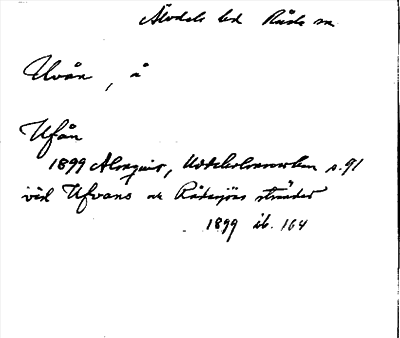 Älvdals hd Råda sn
Uvån, å
Ufån
1899 Almquist, Uddeholmsverken s. 91
vid Ufvans och Rådasjös stränder
1899 ib. 164